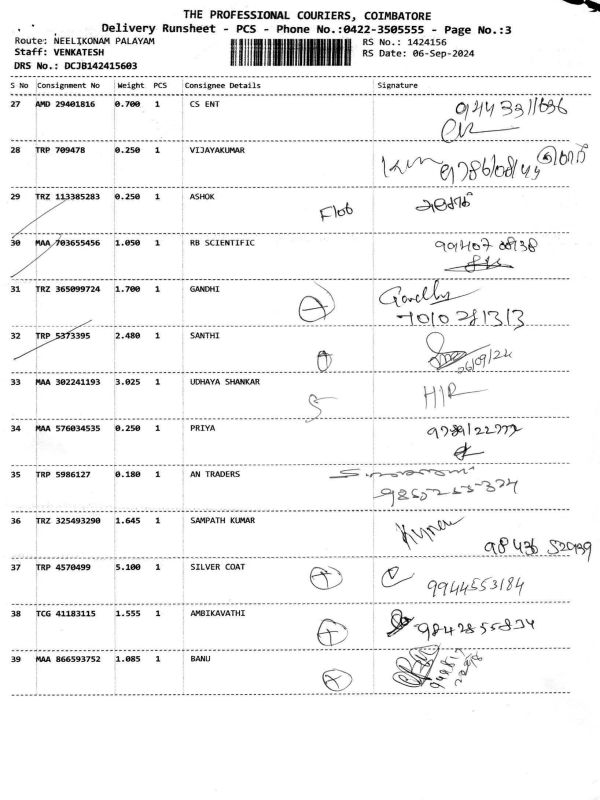 THE PROFESSIONAL COURIERS, COIMBATORE
Delivery Runsheet - PCS - Phone No.:0422-3505555 - Page No.:3
Route: NEELIKONAM PALAYAM RS No.: 1424156
Staff: VENKATESH RS Date: 06-Sep-2024
DRS No.: DCJB142415603
S No Consignment No Weight PCS Consignee Details Signature
27 AMD 29401816 0.700 1 CS ENT
28 TRP 709478 0.250 1 VIJAYAKUMAR
29 TRZ 113385283 0.250 1 ASHOK
30 MAA 703655456 1.050 1 RB SCIENTIFIC
31 TRZ 365099724 1.700 1 GANDHI Gandhi
7010 281313
32 TRP 5373395 2.480 1 SANTHI
06/09/24
33 MAA 302241193 3.025 1 UDHAYA SHANKAR H/R
34 MAA 576034535 0.250 1 PRIYA
35 TRP 5986127 0.180 1 AN TRADERS
36 TRZ 325493290 1.645 1 SAMPATH KUMAR
37 TRP 4570499 5.100 1 SILVER COAT 9944553184
38 TCG 41183115 1.555 1 AMBIKAVATHI 9842855834
39 MAA 866593752 1.085 1 BANU